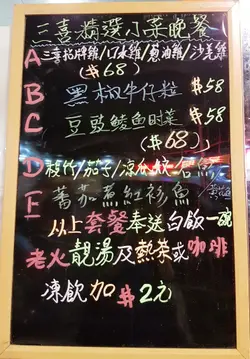 三喜精選小菜晚餐
A 三喜招牌雞/口水雞/蔥油雞/沙薑雞
(#68)
B 黑椒牛仔粒 #58
C 豆豉鯪鱼时菜
(#68)
D 枝竹/茄子/凉瓜
E 蕃茄煮紅衫魚
从上套餐奉送白飯一碗
老火靚湯及熱茶或咖啡
凍飲加#2元